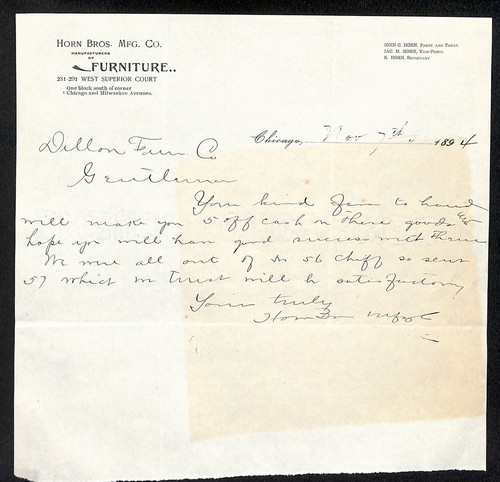 HORN BROS. MFG. CO.
MANUFACTURERS
OF
FURNITURE..
281-291 WEST SUPERIOR COURT
One block south of corner
Chicago and Milwaukee Avenues.
JOHN C. HORN, PREST AND TREAS
JAC M. HORN, VICE-PREST
N. HORN, SECRETARY
Chicago, Nov 7th 1894
Dillon Furn. Co
Gentlemen
Your kind to hand
will make you 5 off cash on these goods
hope you will have good success with these
We were all out of No 56 Cheff so sent
57 which we trust will be satisfactory
Yours truly
Horn Bros Mfg Co